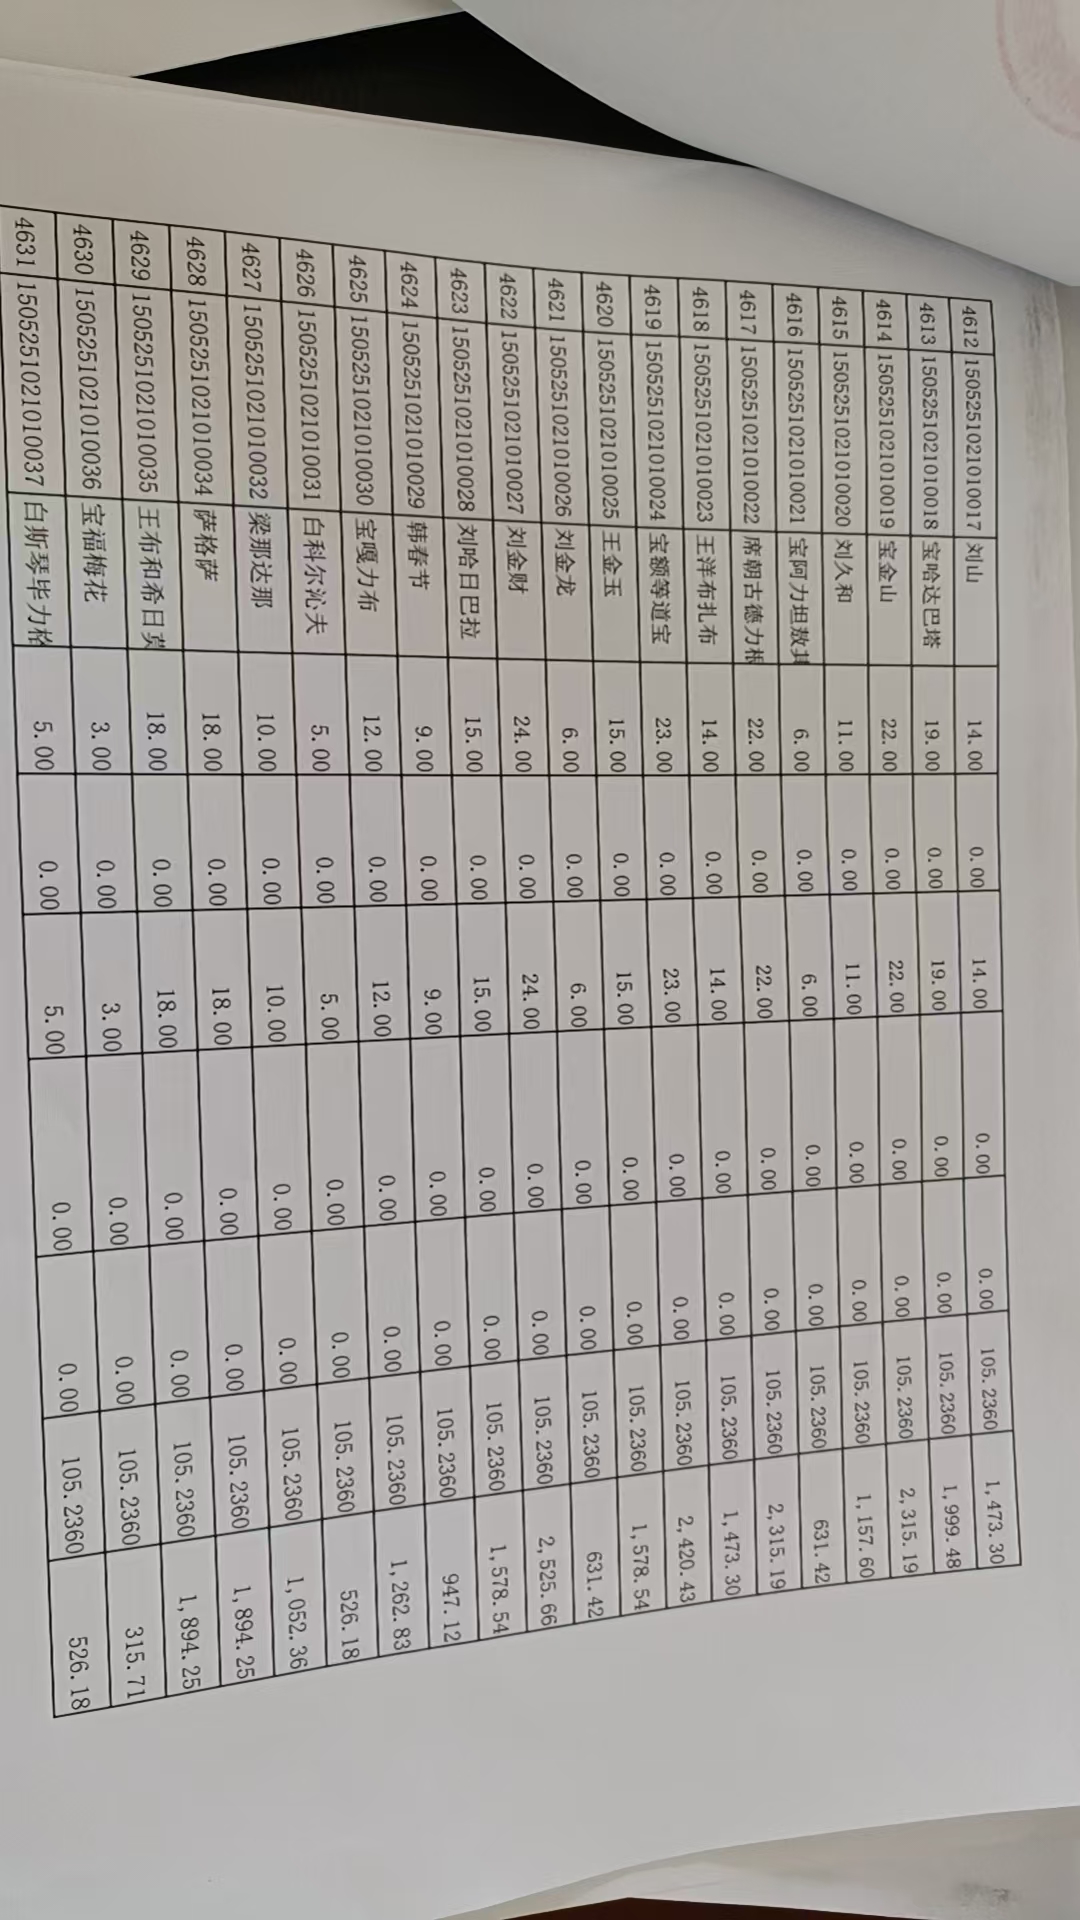 4612 1505251021010017 刘山 14.00 0.00 14.00 0.00 0.00 105.2360 1,473.30
4613 1505251021010018 宝哈达巴塔 19.00 0.00 19.00 0.00 0.00 105.2360 1,999.48
4614 1505251021010019 宝金山 22.00 0.00 22.00 0.00 0.00 105.2360 2,315.19
4615 1505251021010020 刘久和 11.00 0.00 11.00 0.00 0.00 105.2360 1,157.60
4616 1505251021010021 宝阿力坦敖其 6.00 0.00 6.00 0.00 0.00 105.2360 631.42
4617 1505251021010022 席朝古德力根 22.00 0.00 22.00 0.00 0.00 105.2360 2,315.19
4618 1505251021010023 王洋布扎布 14.00 0.00 14.00 0.00 0.00 105.2360 1,473.30
4619 1505251021010024 宝额等道宝 23.00 0.00 23.00 0.00 0.00 105.2360 2,420.43
4620 1505251021010025 王金玉 15.00 0.00 15.00 0.00 0.00 105.2360 1,578.54
4621 1505251021010026 刘金龙 6.00 0.00 6.00 0.00 0.00 105.2360 631.42
4622 1505251021010027 刘金财 24.00 0.00 24.00 0.00 0.00 105.2360 2,525.66
4623 1505251021010028 刘哈日巴拉 15.00 0.00 15.00 0.00 0.00 105.2360 1,578.54
4624 1505251021010029 韩春节 9.00 0.00 9.00 0.00 0.00 105.2360 947.12
4625 1505251021010030 宝嘎力布 12.00 0.00 12.00 0.00 0.00 105.2360 1,262.83
4626 1505251021010031 白科尔沁夫 5.00 0.00 5.00 0.00 0.00 105.2360 526.18
4627 1505251021010032 梁那达那 10.00 0.00 10.00 0.00 0.00 105.2360 1,052.36
4628 1505251021010034 萨格萨 18.00 0.00 18.00 0.00 0.00 105.2360 1,894.25
4629 1505251021010035 王布和希日莫 18.00 0.00 18.00 0.00 0.00 105.2360 1,894.25
4630 1505251021010036 宝福梅花 3.00 0.00 3.00 0.00 0.00 105.2360 315.71
4631 1505251021010037 白斯琴毕力格 5.00 0.00 5.00 0.00 0.00 105.2360 526.18